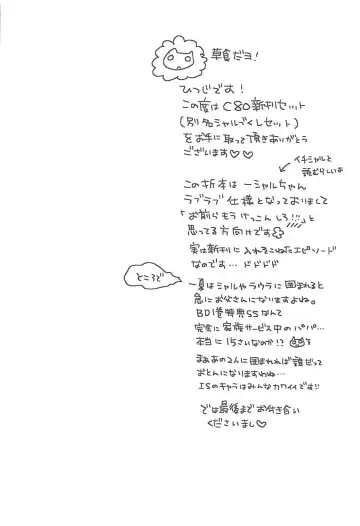 草食だヨ!
ひつじです!
この度はC80新刊セット
(別名シャルづくしセット)
をお手に取って頂きありがとう
ございます♡♡
イチシャルと
読むらしいよ
この折本は一シャルちゃん
ラブラブ仕様となっておりまして
「お前らもうけっこんしろ!!」と
思ってる方向けです
実は新刊に入れそこねたエピソード
なのです…ドドドド
ところで
一夏はシャルやラウラに囲まれると
急にお父さんになりますよね。
BD1巻特典SSなんて
完全に家族サービス中のパパ…
本当に15さいなのか!?
まぁあの2人に囲まれれば誰だって
おとんになりますわね…
ISのキャラはみんなカワイイです!!
では最後までお付き合い
くださいまし♡